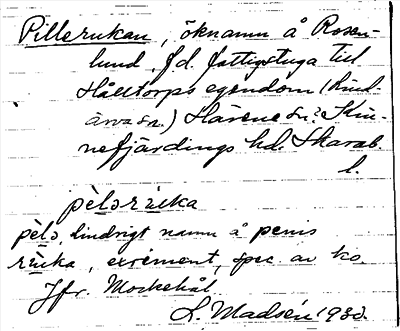 Pillerukan, öknamn å Rosen-
lund, f.d. fattigstuga till
Hålltorps egendom (Lind-
ärva sn.) Härene sn? Kin-
nefjärdings hd. Skarab.
l.
pèlɘrùka
pèlɘ, lindrigt namn å penis
rùka, exrement, spec. av ko.
Jfr. Mockehål
L. Madsén 1930.